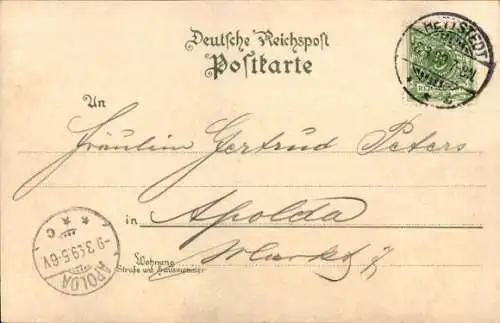 Deutsche Reichspost
Postkarte
HETTSTEDT
An
Fräulein Gertrud Peters
in Apolda
Markt 7
Wohnung
Straße und Hausnummer
APOLDA
-9.3.99.5-6V
* * C